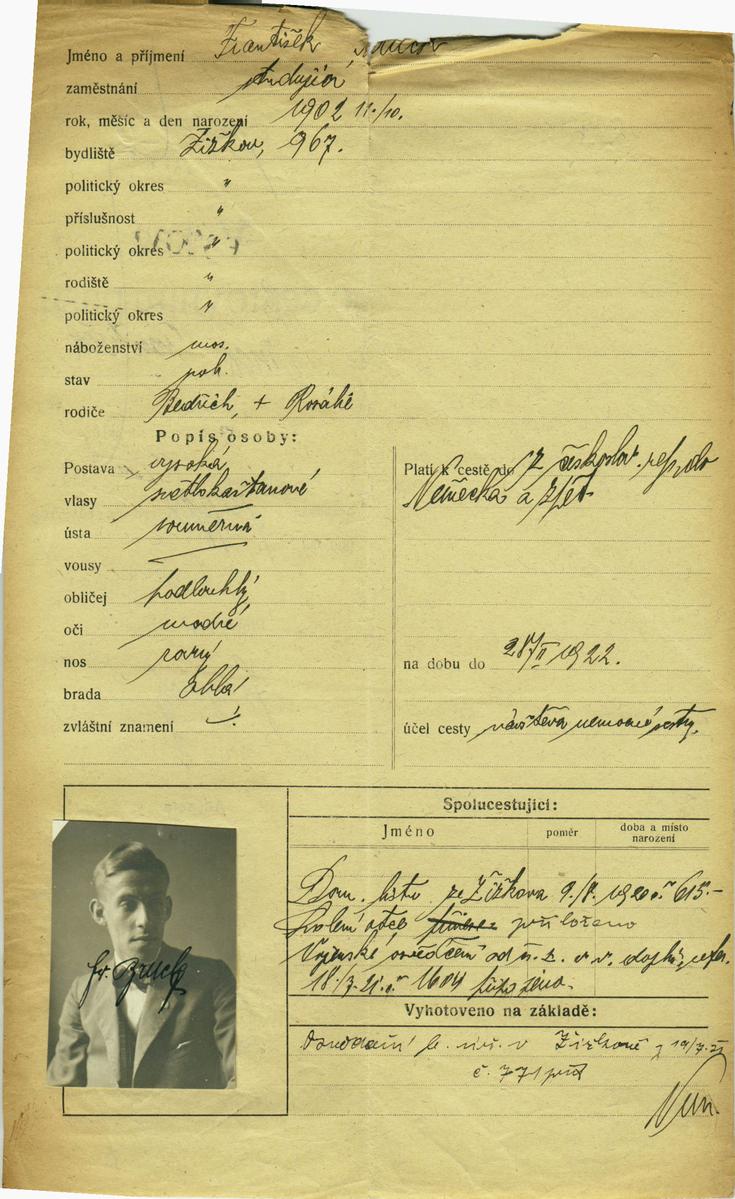 Jméno a příjmení František
zaměstnání studující
rok, měsíc a den narození 1902 11./10.
bydliště Žižkov, 967.
politický okres "
příslušnost "
politický okres "
rodiště "
politický okres "
náboženství mos.
stav
rodiče Bedřich, +
Popis osoby:
Postava vysoká
vlasy světlokaštanové
ústa souměrná
vousy
obličej podlouhlý
oči modré
nos rovný
brada oblá
zvláštní znamení
Platí k cestě do z českoslov. rep. do
Německa a zpět
na dobu do 28/II 1922.
účel cesty návštěva nemocné sestry.
Spolucestující:
Jméno poměr doba a místo
narození
Dom. list ze Žižkova 9./8. 1920 č. 615.-
Svolení otce přiloženo
Vojenské osvědčení od
18./3. 21. č. 1604
Vyhotoveno na základě:
v Žižkově z 19/7 21
č. 771
Fr. Bruck